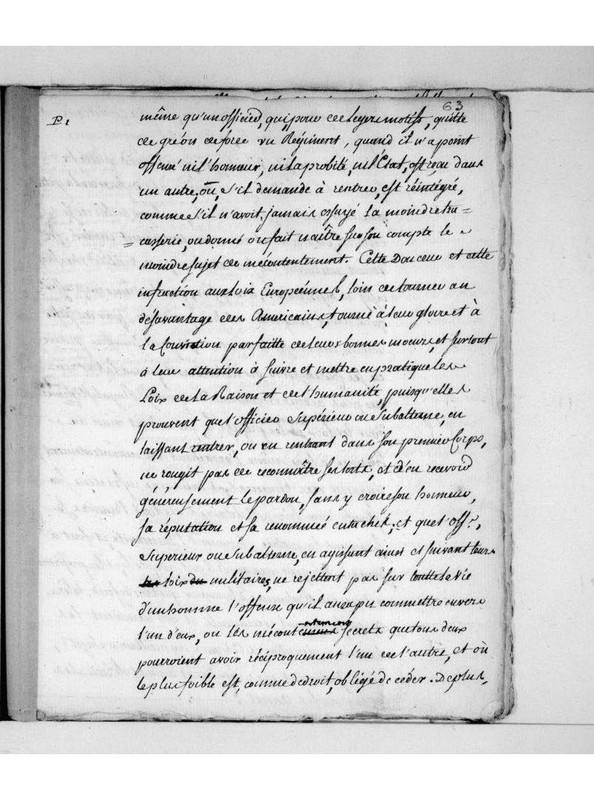 63
P. 1
même qu'un officier, qui pour de legers motifs, quitte
de gré ou de force un Régiment, quand il n'a point
offensé ni l'honneur, ni la probité, ni l'Etat, est reçu dans
un autre, ou, s'il demande à rentrer, est réintégré,
comme s'il n'avoit jamais essuyé la moindre tra=
=casserie, ou donné ou fait naître sur son compte le
moindre sujet de mécontentement. Cette Douceur et cette
infraction aux Loix Européennes, loin de tourner au
désavantage des Americains, tourne à leur gloire et à
la conviction parfaite de leurs bonnes moeurs, et surtout
à leur attention à suivre et mettre en pratique les
Loix de la Raison et de l'humanité, puisqu'elles
prouvent que l'officier Supérieur ou Subalterne, en
laissant rentrer, ou en rentrant dans son premier Corps,
ne rougit pas de reconnoître ses torts, et d'en recevoir
généreusement le pardon, sans y croire son honneur,
sa réputation et sa renommée entachés, et que l'off.r,
Superieur ou Subalterne, en agissant ainsi et suivant leurs
Loix militaires, ne rejettent pas sur toutte la vie
d'un homme l'offense qu'il aura pu commettre envers
l'un d'eux, ou les mécontentemens secrets que tous deux
pourroient avoir réciproquement l'un de l'autre, et où
le plus foible est, comme de droit, obligé de ceder. De plus,